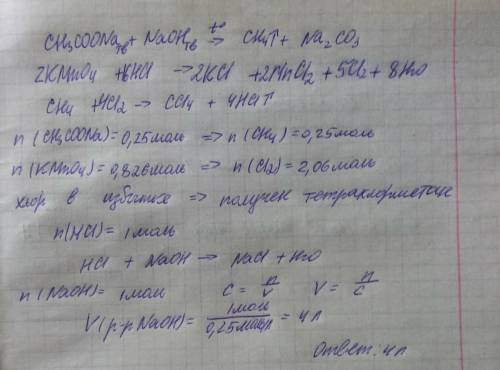 CH₃COONaтв + NaOHтв t°⇒ CH₄↑ + Na₂CO₃
2KMnO₄ + 16HCl → 2KCl + 2MnCl₂ + 5Cl₂ + 8H₂O
CH₄ + 4Cl₂ → CCl₄ + 4HCl↑
n(CH₃COONa) = 0,25моль => n(CH₄) = 0,25моль
n(KMnO₄) = 0,826моль => n(Cl₂) = 2,06моль
хлор в избытке => получен тетрахлорметан
n(HCl) = 1моль
HCl + NaOH → NaCl + H₂O
n(NaOH) = 1моль C = n/V V = n/C
V(р-р NaOH) = 1моль/0,25моль/л = 4л
Ответ: 4л